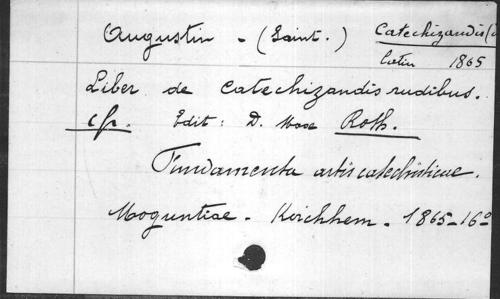 Augustin - (Saint.)
Catechizandis (
latin 1865
Liber de Catechizandis rudibus.
cfr. Edit: D. Max Roth.
Fundamenta artis catechisticae.
Moguntiae - Kirchhem - 1865 - 16º